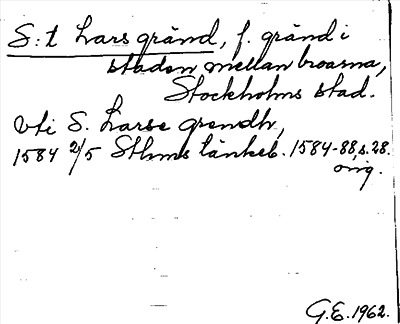 S:t Lars gränd, f. gränd i
staden mellan broarna,
Stockholms stad.
vti S. Larss grendh,
1584 2/5 Sthms tänkeb. 1584-88, s. 28.
orig.
G.E. 1962.